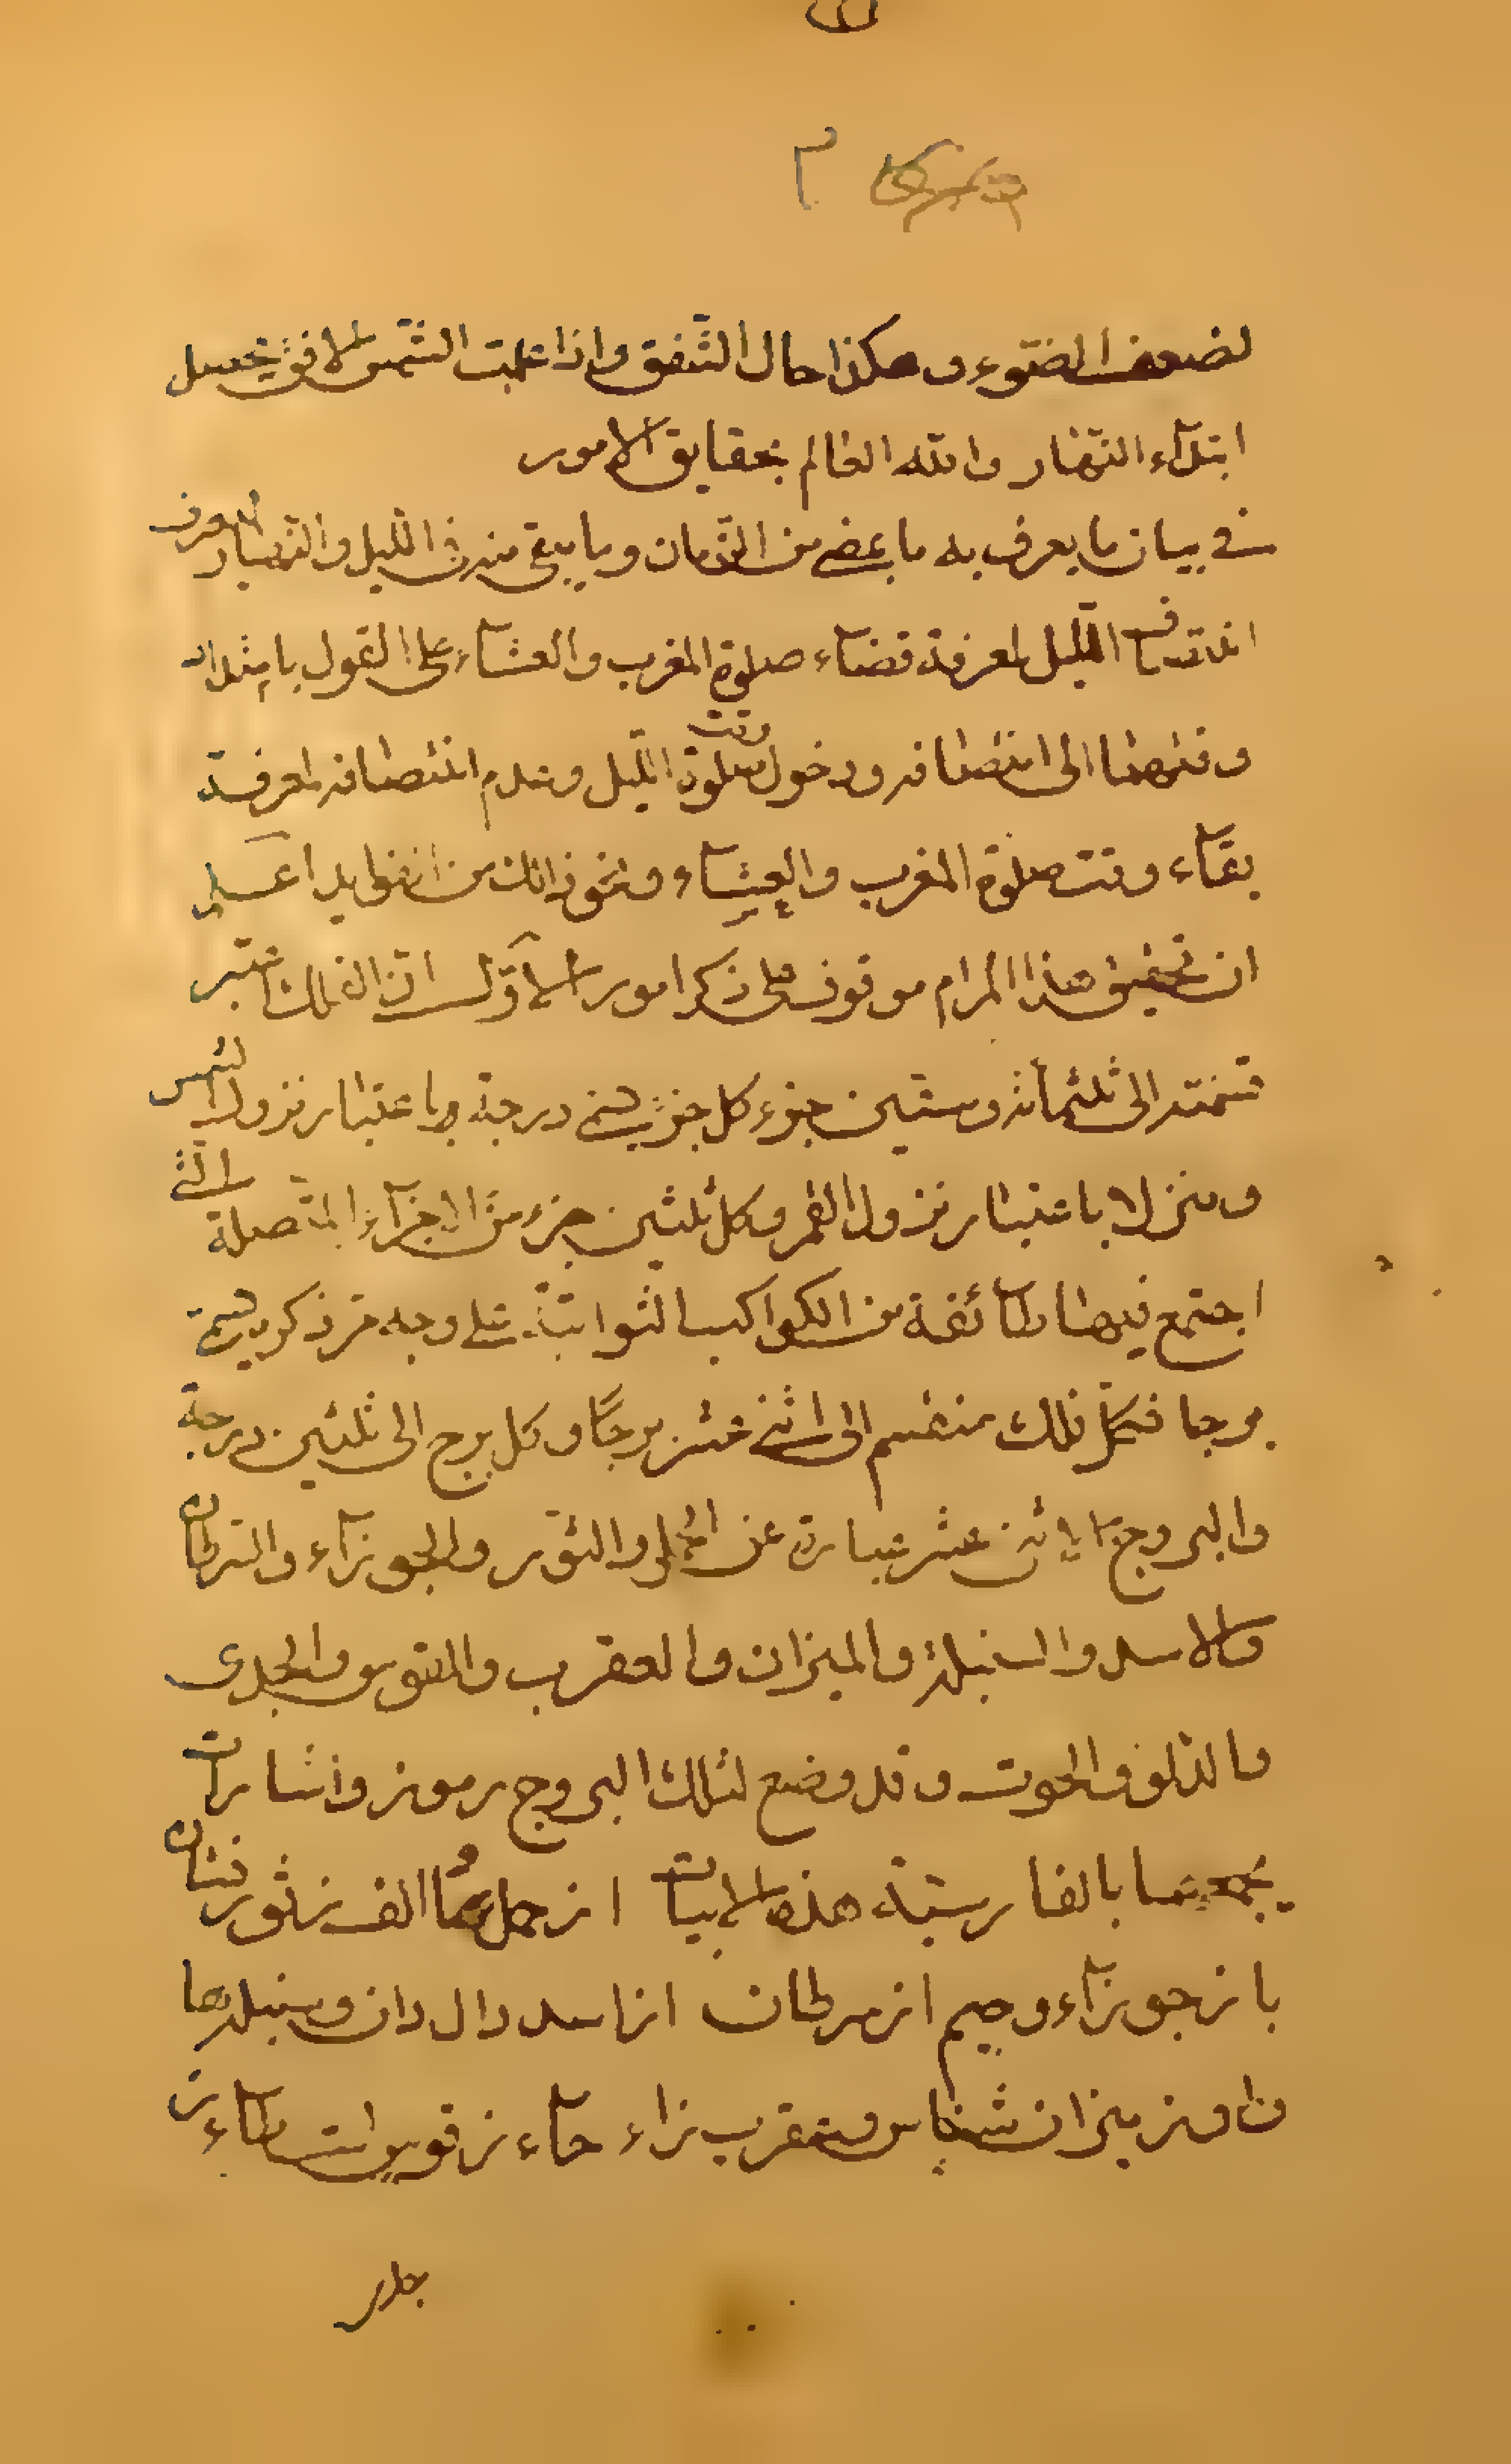 لضعف الضّوء وهكذا حال الشّفق واذا غلبت الشّمس الافق يحصل
ابتدآء النّهار والله العالم بحقايق الامور
في بيان ما يعرف به ما يمضى من الزّمان وما يبقى منه فى اللّيل والنّهار ليعرف
انتصاف اللّيل لمعرفة قضآء صلوة المغرب والعشآء على القول بامتداد
وقتهما الى انتصافه ودخول وقت صلوة اللّيل وعدم انتصافه لمعرفة
بقآء وقت صلوة المغرب والعشآء ونحو ذلك من الفوايد اعلم
ان تحقيق هذا المرام موقوف على ذكر امور الاوّل انّ الفلك معتبر
قسمته الى ثلثمائة وستّين جزء كل جزء يسمى درجة باعتبار نزول الشمس
ومنزلا باعتبار نزول القمر وكل ثلثين جزء من الاجزآء المتّصلة الّتي
اجتمع فيها طآئفة من الكواكب الثوابتة على وجه مذكور يسمّى
برجا فكلّ فلك منقسم الى اثني عشر برجًا وكل برج الى ثلثين درجة
والبروج الاثنى عشر عبارة عن الحمل والثّور والجوزآء والسّرطان
والاسد والسّنبلة والميزان والعقرب والقوس والجدى
والدّلو والحوت وقد وضع لتلك البروج رموز واشارات
يجمعها بالفارسيّة هذه الابيات از حمل الف ز ثور نشان
با ز جوزآء وجيم از سرطان از اسد دال دان وسنبله ها
واو ز ميزان شناس وعقرب زاء حآء ز قوس است طآء ز